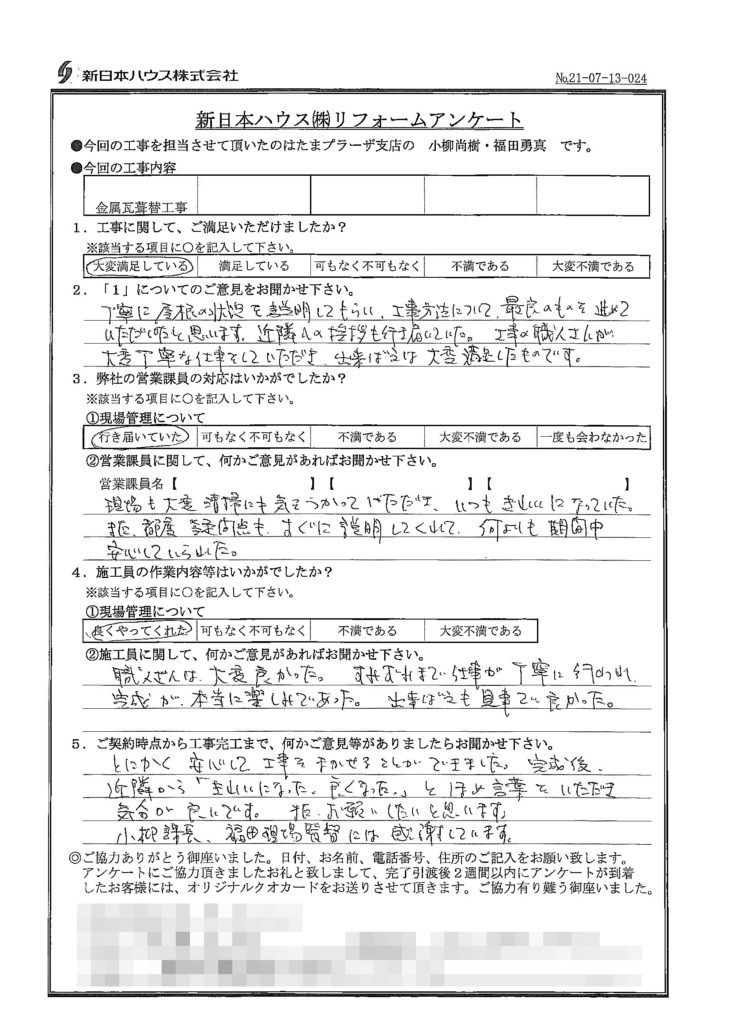 新日本ハウス株式会社
No.21-07-13-024
新日本ハウス㈱リフォームアンケート
●今回の工事を担当させて頂いたのはたまプラーザ支店の 小柳尚樹・福田勇真 です。
●今回の工事内容
金属瓦葺替工事
1．工事に関して、ご満足いただけましたか？
※該当する項目に○を記入して下さい。
大変満足している 満足している 可もなく不可もなく 不満である 大変不満である
2．「1」についてのご意見をお聞かせ下さい。
丁寧に屋根の状況を説明してもらい、工事方法について、最良のものを進めて
いただいたと思います。近隣への挨拶も行き届いていた。工事の職人さんが、
大変丁寧な仕事をしていただき、出来ばえは大変満足したものです。
3．弊社の営業課員の対応はいかがでしたか？
※該当する項目に○を記入して下さい。
①現場管理について
行き届いていた 可もなく不可もなく 不満である 大変不満である 一度も会わなかった
②営業課員に関して、何かご意見があればお聞かせ下さい。
営業課員名【 】【 】【 】
現場も大変清掃にも気をつかっていただき、いつもきれいになっていた。
また、都度疑問点も、すぐに説明してくれて、何よりも期間中
安心していられた。
4．施工員の作業内容等はいかがでしたか？
※該当する項目に○を記入して下さい。
①現場管理について
良くやってくれた 可もなく不可もなく 不満である 大変不満である
②施工員に関して、何かご意見があればお聞かせ下さい。
職人さんは、大変良かった。すみずみまで仕事が丁寧に行われ、
完成が、本当に楽しみであった。出来ばえも見事で良かった。
5．ご契約時点から工事完工まで、何かご意見等がありましたらお聞かせ下さい。
とにかく安心して工事をまかせることができました。完成後、
近隣から「きれいになった。良くなった。」とほめ言葉をいただき
気分が良いです。また、お願いしたいと思います。
小柳課長、福田現場監督には感謝しています。
◎ご協力ありがとう御座いました。日付、お名前、電話番号、住所のご記入をお願い致します。
アンケートにご協力頂きましたお礼と致しまして、完了引渡後2週間以内にアンケートが到着
したお客様には、オリジナルクオカードをお送りさせて頂きます。ご協力有り難う御座いました。